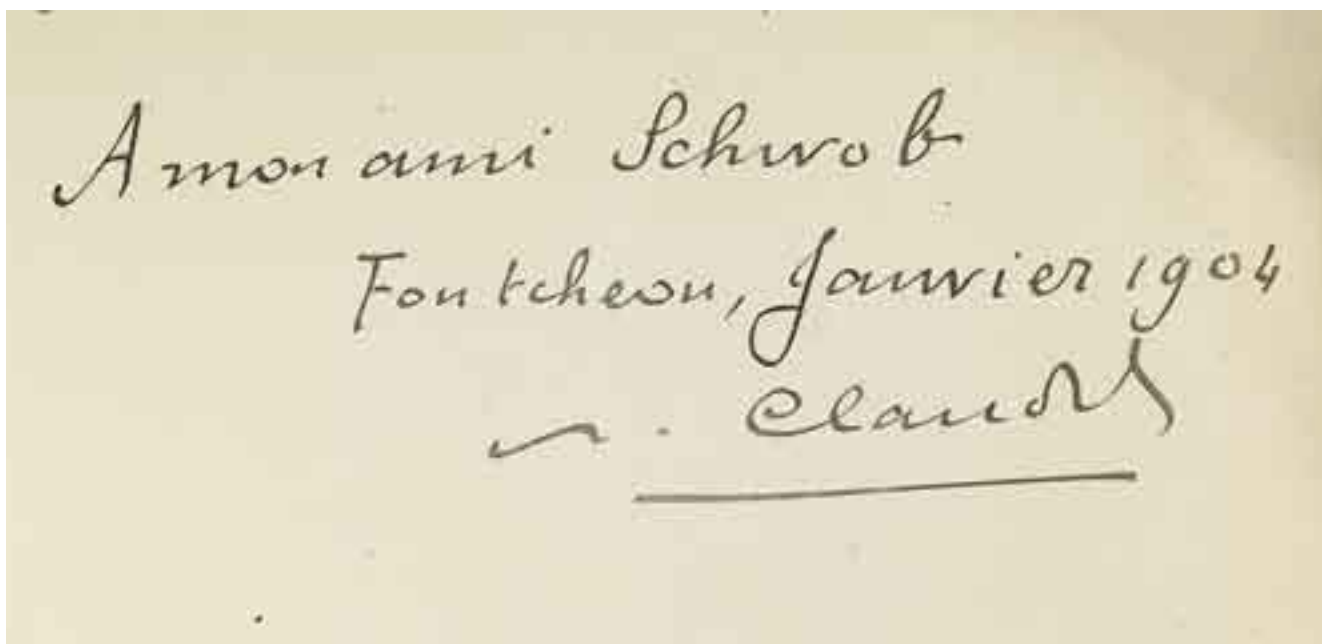 A mon ami Schwob
Fontcheou, Janvier 1904
Claudel